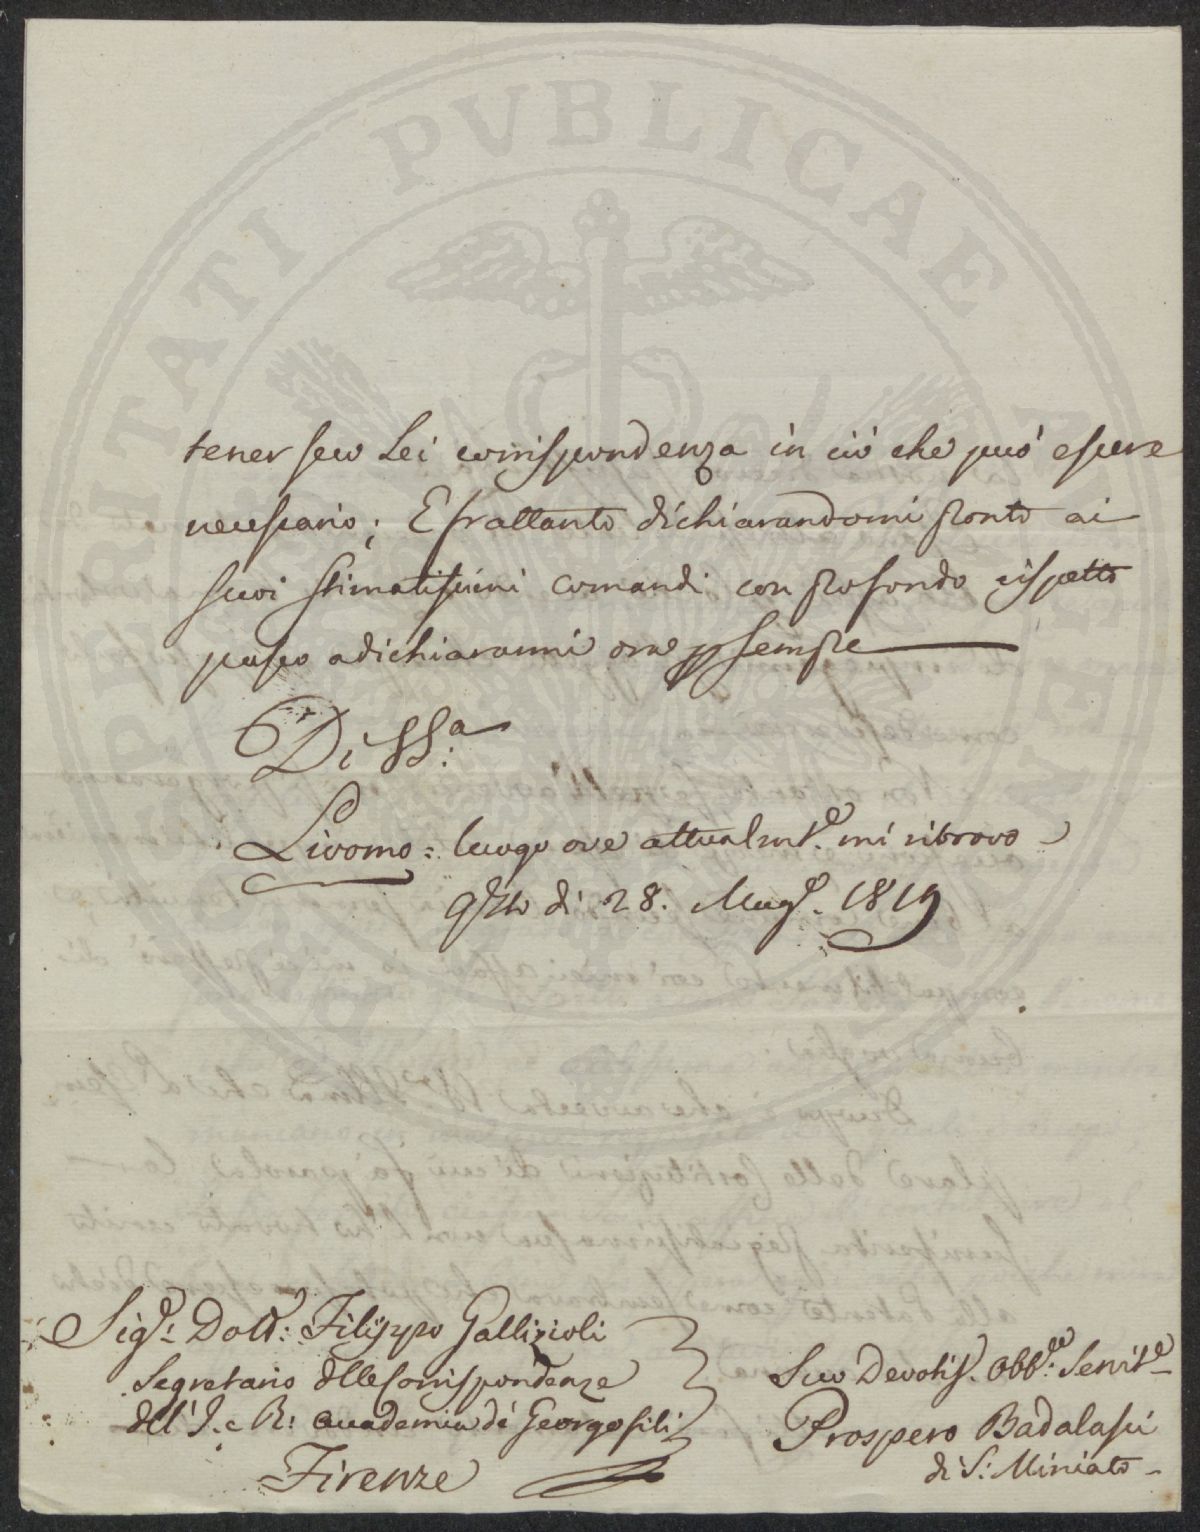 PROSPERITATI PVBLICAE AVGENDAE
tener seco Lei corrispondenza in ciò che può essere
necessario; E frattanto dichiarandomi pronto ai
suoi stimatissimi comandi con profondo rispetto
passo a dichiararmi ora p sempre
Di SSa:
Livorno = luogo ove attualmte. mi ritrovo
qsto dì 28. Magg. 1819
Sigr: Dottr: Filippo Gallizioli
Segretario delle Corrispondenze
dell' I. e R: accademia dè Georgofili
Firenze
Suo Devotis. Obbmo Servite
Prospero Badalassi
di S: Miniato